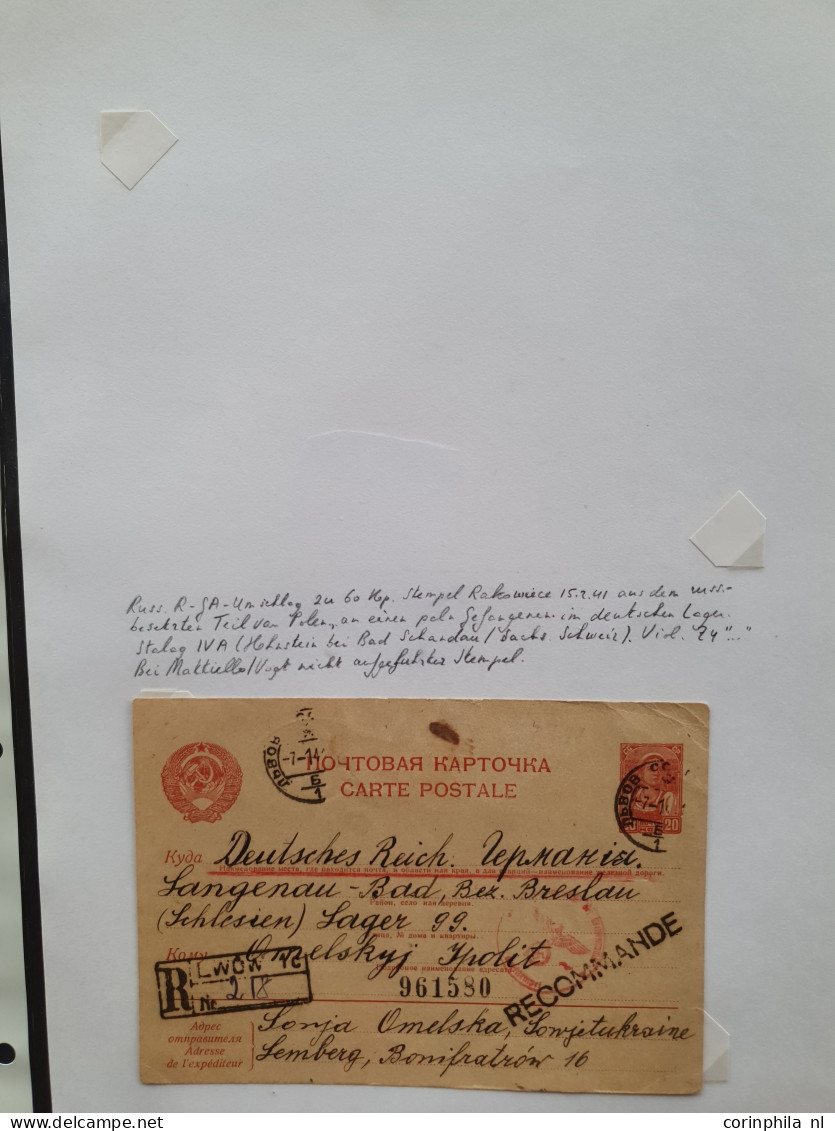 Russ. R-GA-Umschlag zu 60 Kop. Stempel Rakowiece 15.2.41 aus dem russ.-
besetzten Teil von Polen, an einen poln Gefangenen im deutschen Lager.
Stalag IVA (Hohnstein bei Bad Schandau / Sächs. Schweiz). Viol. "..."
Bei Mattiello/Vogt nicht aufgeführter Stempel.
ПОЧТОВАЯ КАРТОЧКА
CARTE POSTALE
ЛЬВОВ
-7-1
Б
1
ЛЬВОВ
-7-1
Б
1
20
Куда Deutsches Reich. Германія.
Langenau-Bad, Bez. Breslau
Район, село или деревня.
(Schlesien) Lager 99.
Улица, № дома и квартиры
Кому Omelskyj Ipolit
RECOMMANDE
R LWÓW
№ 218
961580
Адрес отправителя
Adresse de l'expéditeur
Sonja Omelska, Sowjetukraine
Lemberg, Bonifratrów 16
www.delcampe.net
corinphila nl